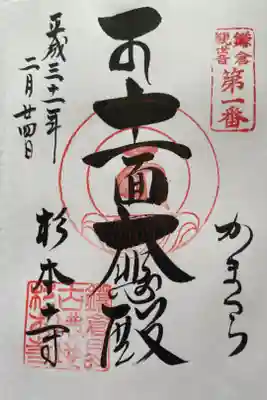 鎌倉
観世音
第一番
かまくら
十一面大悲殿
平成三十一年
二月廿四日
杉本寺